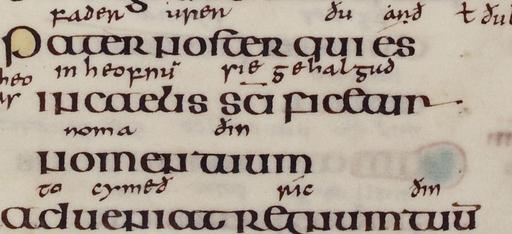 fader urer ðu arð ł ðu
Pater noster qui es
in heofnū sie gehalgud
in caelis sc̄ificetur
noma ðin
nomen tuum
to cymeð ric ðin
adueniat regnum tuū